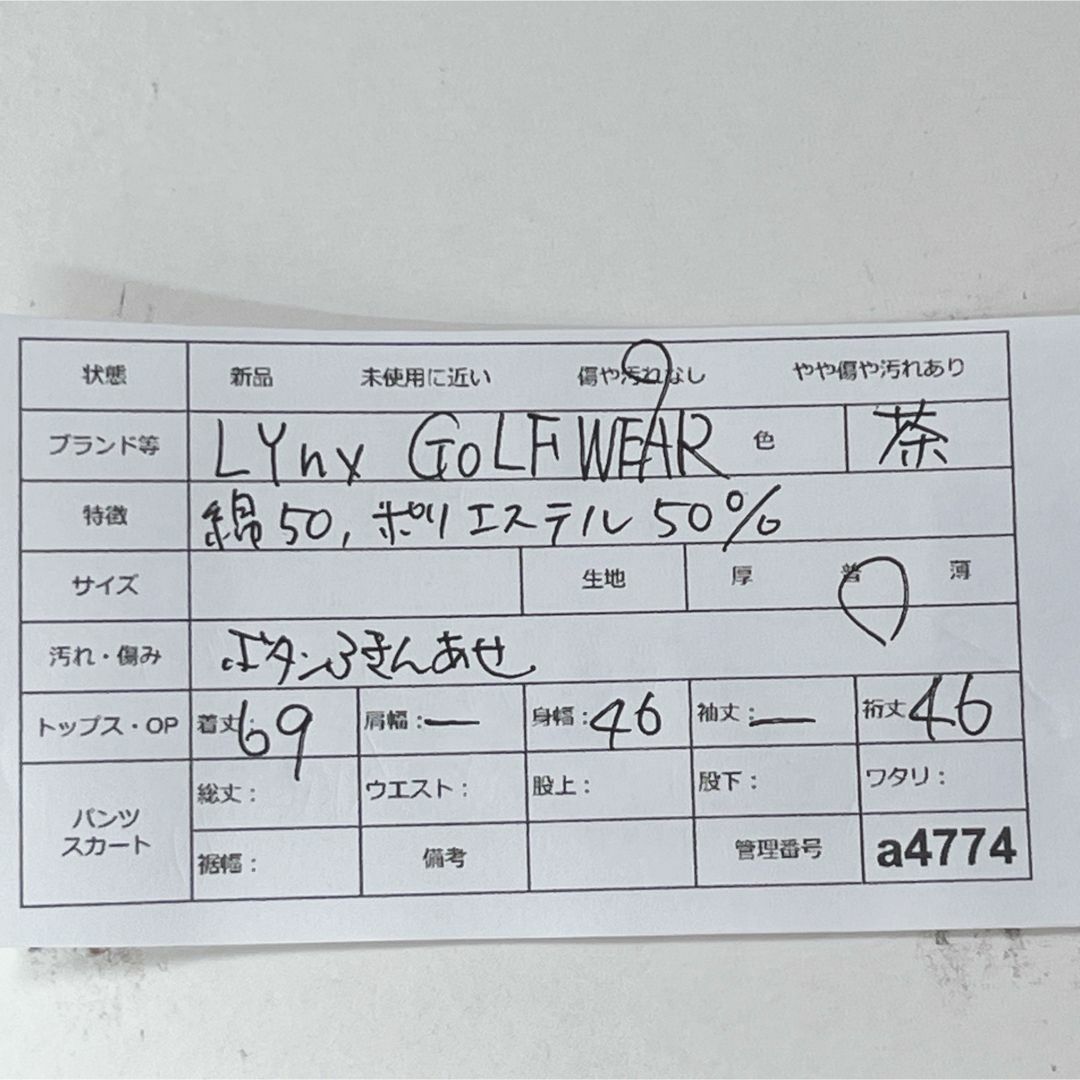 状態 新品 未使用に近い 傷や汚れなし やや傷や汚れあり
ブランド等 LYnx GoLF WEAR 色 茶
特徴 綿50, ポリエステル50%
サイズ 生地 厚 普 薄
汚れ・傷み ボタンふきんあせ
トップス・OP 着丈:69 肩幅:ー 身幅:46 袖丈:ー 裄丈46
パンツ スカート 総丈: ウエスト: 股上: 股下: ワタリ:
裾幅: 備考 管理番号 a4774